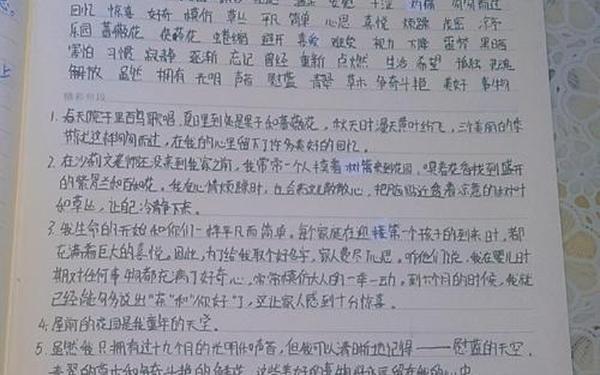 回忆 惊喜 好奇 模仿 草丛 平凡 简单 心思 喜悦 烦躁 茂密 冷静
乐园 蔷薇花 使菊花 蜷缩 避开 喜爱 难免 视力 下降 雷声 黑暗
害怕 习惯 寂静 逐渐 忘记 曾经 重新 点燃 生活 希望 孤独
解放 虽然 拥有 光明 声音 慰蓝 青翠 草木 争奇斗艳 美好 事物
精彩片段
1. 春天院子里百鸟歌唱,夏日里到处是果子和蔷薇花,秋天时漫天黄叶纷飞,三个美丽的季
节让这样匆匆而过,在我的心里留下了许多美好的回忆。
2. 在沙莉文老师还没来到我家之前,我常常一个人摸着树篱来到花园,嗅着花香找到盛开
的紫罗兰和百合花。我在心情烦躁时,也会来这儿散散心,把脸贴近透着凉意的
和草丛,让自己冷静下来。
3. 我生命的开始和你们一样平凡而简单。每个家庭在迎接第一个孩子的到来时,都
充满着巨大的喜悦。因此,为了给我取个好名字,家人费尽了心思。听他们说,我在婴儿时
期对任何事物都充满了好奇心,常常模仿大人的一举一动,到六个月的时候,我就
已经能够发出“茶”和“你好”了,这让家人感到十分惊喜。
4. 屋前的花园是我童年的天空。
5. 虽然我只拥有过十九个月的光明和声音,但我可以清晰地记得——慰蓝的天空、
青翠的草木和争奇斗艳的鲜花,这些美好的事物